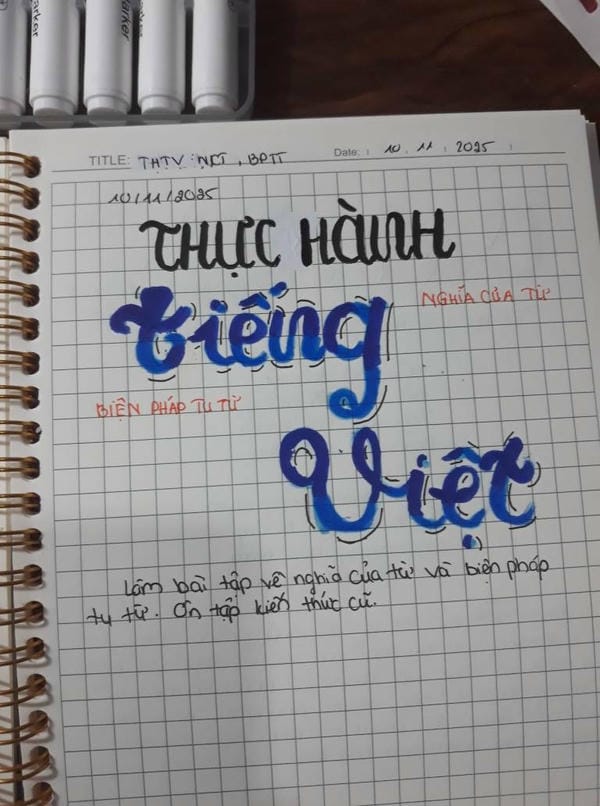 arker
arker
TITLE: THTV NCT, BPTT
Date: 10 11 2025
10/11/2025
THỰC HÀNH
tiếng
NGHĨA CỦA TỪ
BIỆN PHÁP TU TỪ
Việt
Làm bài tập về nghĩa của từ và biện pháp
tu từ. Ôn tập kiến thức cũ.